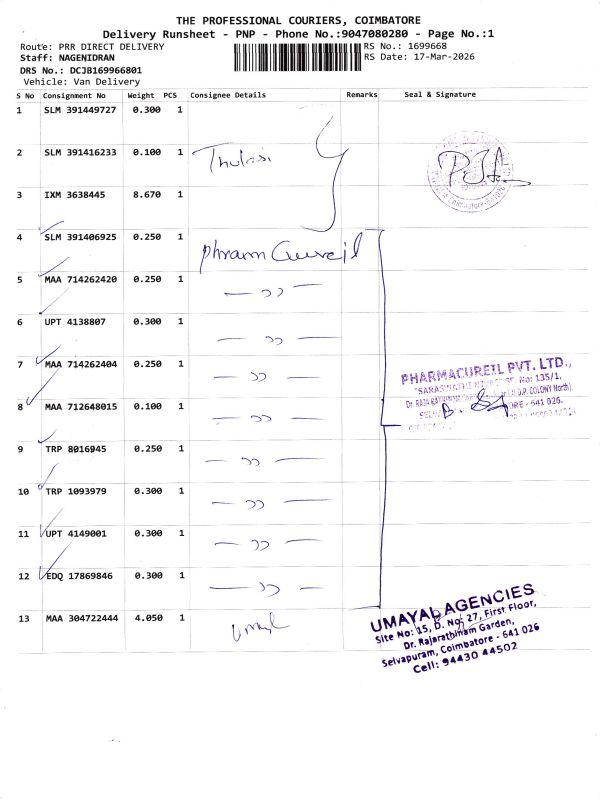 THE PROFESSIONAL COURIERS, COIMBATORE
Delivery Runsheet - PNP - Phone No.:9047080280 - Page No.:1
Route: PRR DIRECT DELIVERY RS No.: 1699668
Staff: NAGENIDRAN RS Date: 17-Mar-2026
DRS No.: DCJB169966801
Vehicle: Van Delivery
S No Consignment No Weight PCS Consignee Details Remarks Seal & Signature
1 SLM 391449727 0.300 1
2 SLM 391416233 0.100 1 Thulasi
3 IXM 3638445 8.670 1
4 SLM 391406925 0.250 1 Pharm Cureil
5 MAA 714262420 0.250 1 — ״ —
6 UPT 4138807 0.300 1 — ״ —
7 MAA 714262404 0.250 1 — ״ —
8 MAA 712648015 0.100 1 — ״ —
9 TRP 8016945 0.250 1 — ״ —
10 TRP 1093979 0.300 1 — ״ —
11 UPT 4149001 0.300 1 — ״ —
12 EDQ 17869846 0.300 1 — ״ —
13 MAA 304722444 4.050 1 Umayl
PHARMACUREIL PVT. LTD.,
No: 135/1,
COLONY North),
ORE - 641 026.
UMAYAL AGENCIES
Site No: 15, D. No: 27, First Floor,
Dr. Rajarathinam Garden,
Selvapuram, Coimbatore - 641 026
Cell: 94430 44502